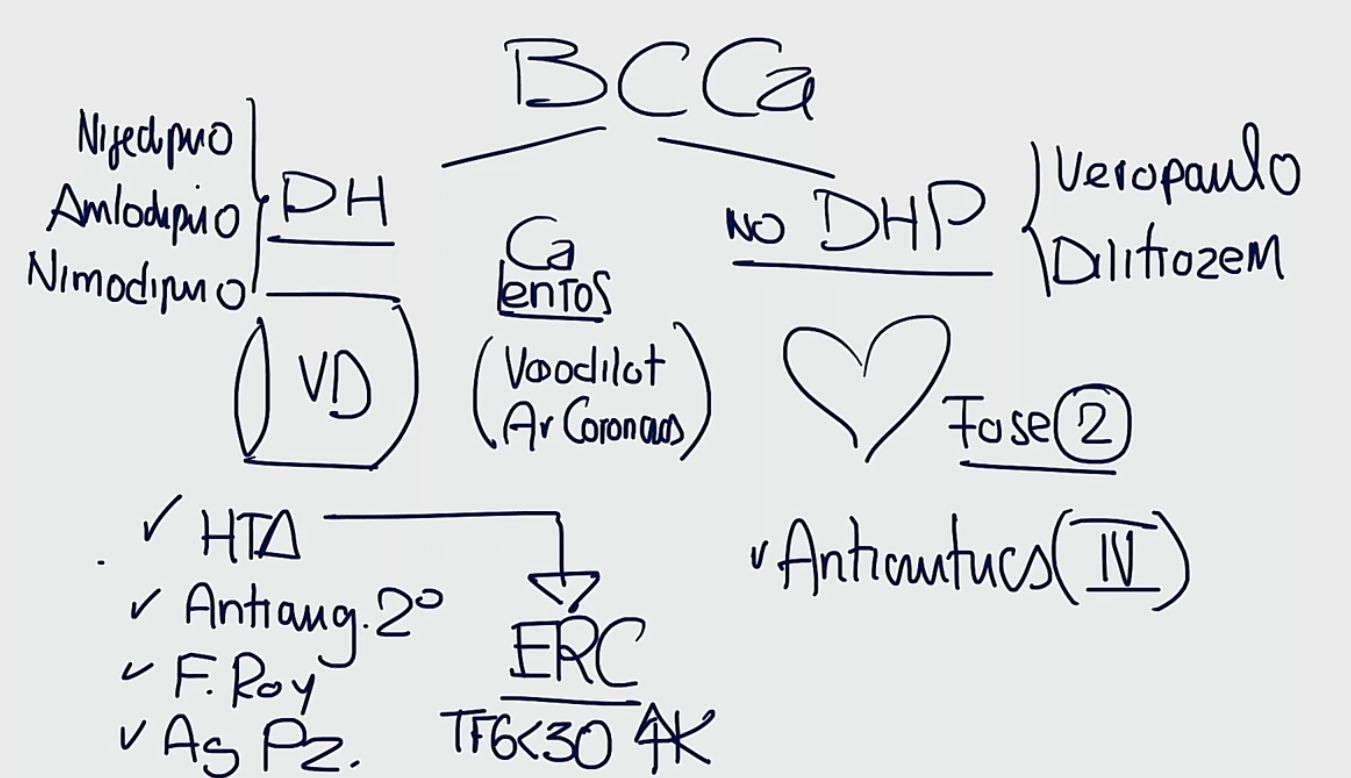 BCCa
Nifedipino
Amlodipino
Nimodipino
DH
VD
Ca
lentos
(Vasodilat
Ar Coronarias)
NO DHP
Verapamilo
Dilitiazem
Fase 2
✓ HTA
✓ Antiang. 2º
✓ F. Ray
✓ Ag Pz.
ERC
TFG<30 ↑K
✓ Antiarritmicos (IV)